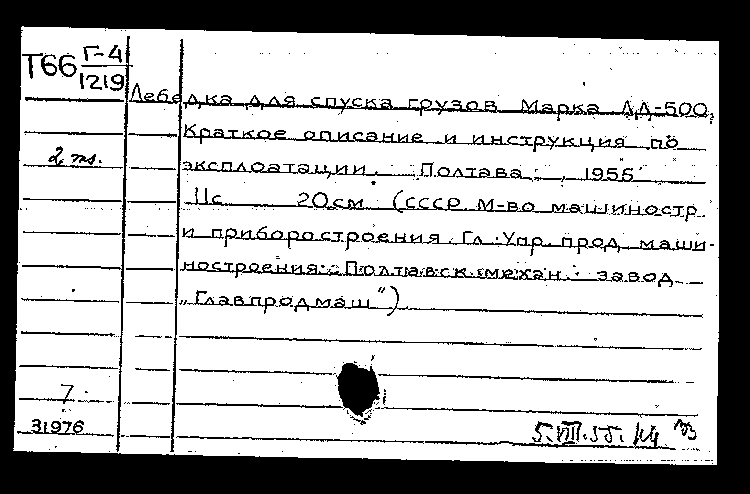 Т66 Г-4
1219
Лебедка для спуска грузов марка ЛД-500.
Краткое описание и инструкция по
2 тз.
эксплоатации. Полтава, 1955
11с 20см (СССР. М-во машиностр.
и приборостроения. Гл. Упр. прод. маши-
ностроения. Полтавск. механ. завод
„Главпродмаш")
7
31976
5.VIII.55.